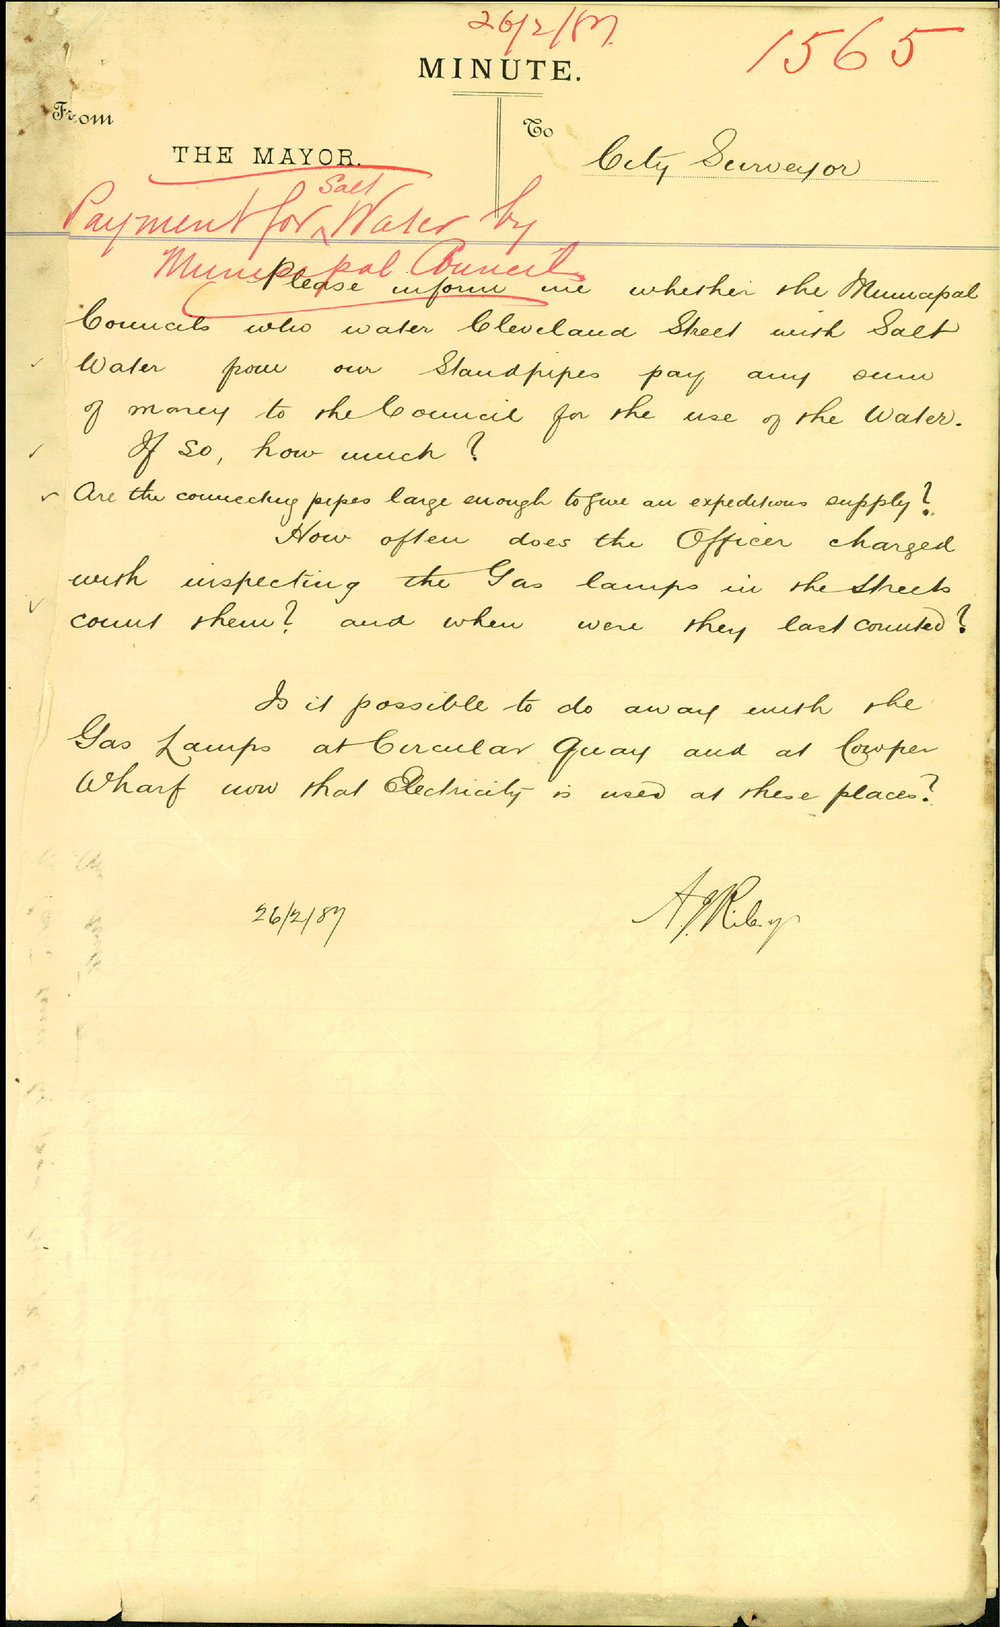 26/2/87
1565
MINUTE.
From
To
THE MAYOR.
City Surveyor
Salt
Payment for ^ Water by
Municipal Council
Please inform me whether the Municipal
Councils who water Cleveland Street with Salt
Water from our Standpipes pay any sum
of money to the Council for the use of the Water.
If so, how much?
Are the connecting pipes large enough to give an expeditious supply?
How often does the Officer charged
with inspecting the Gas lamps in the Streets
count them? and when were they last counted?
Is it possible to do away with the
Gas Lamps at Circular Quay and at Cowper
Wharf now that Electricity is used at these places?
26/2/87
A J Riley